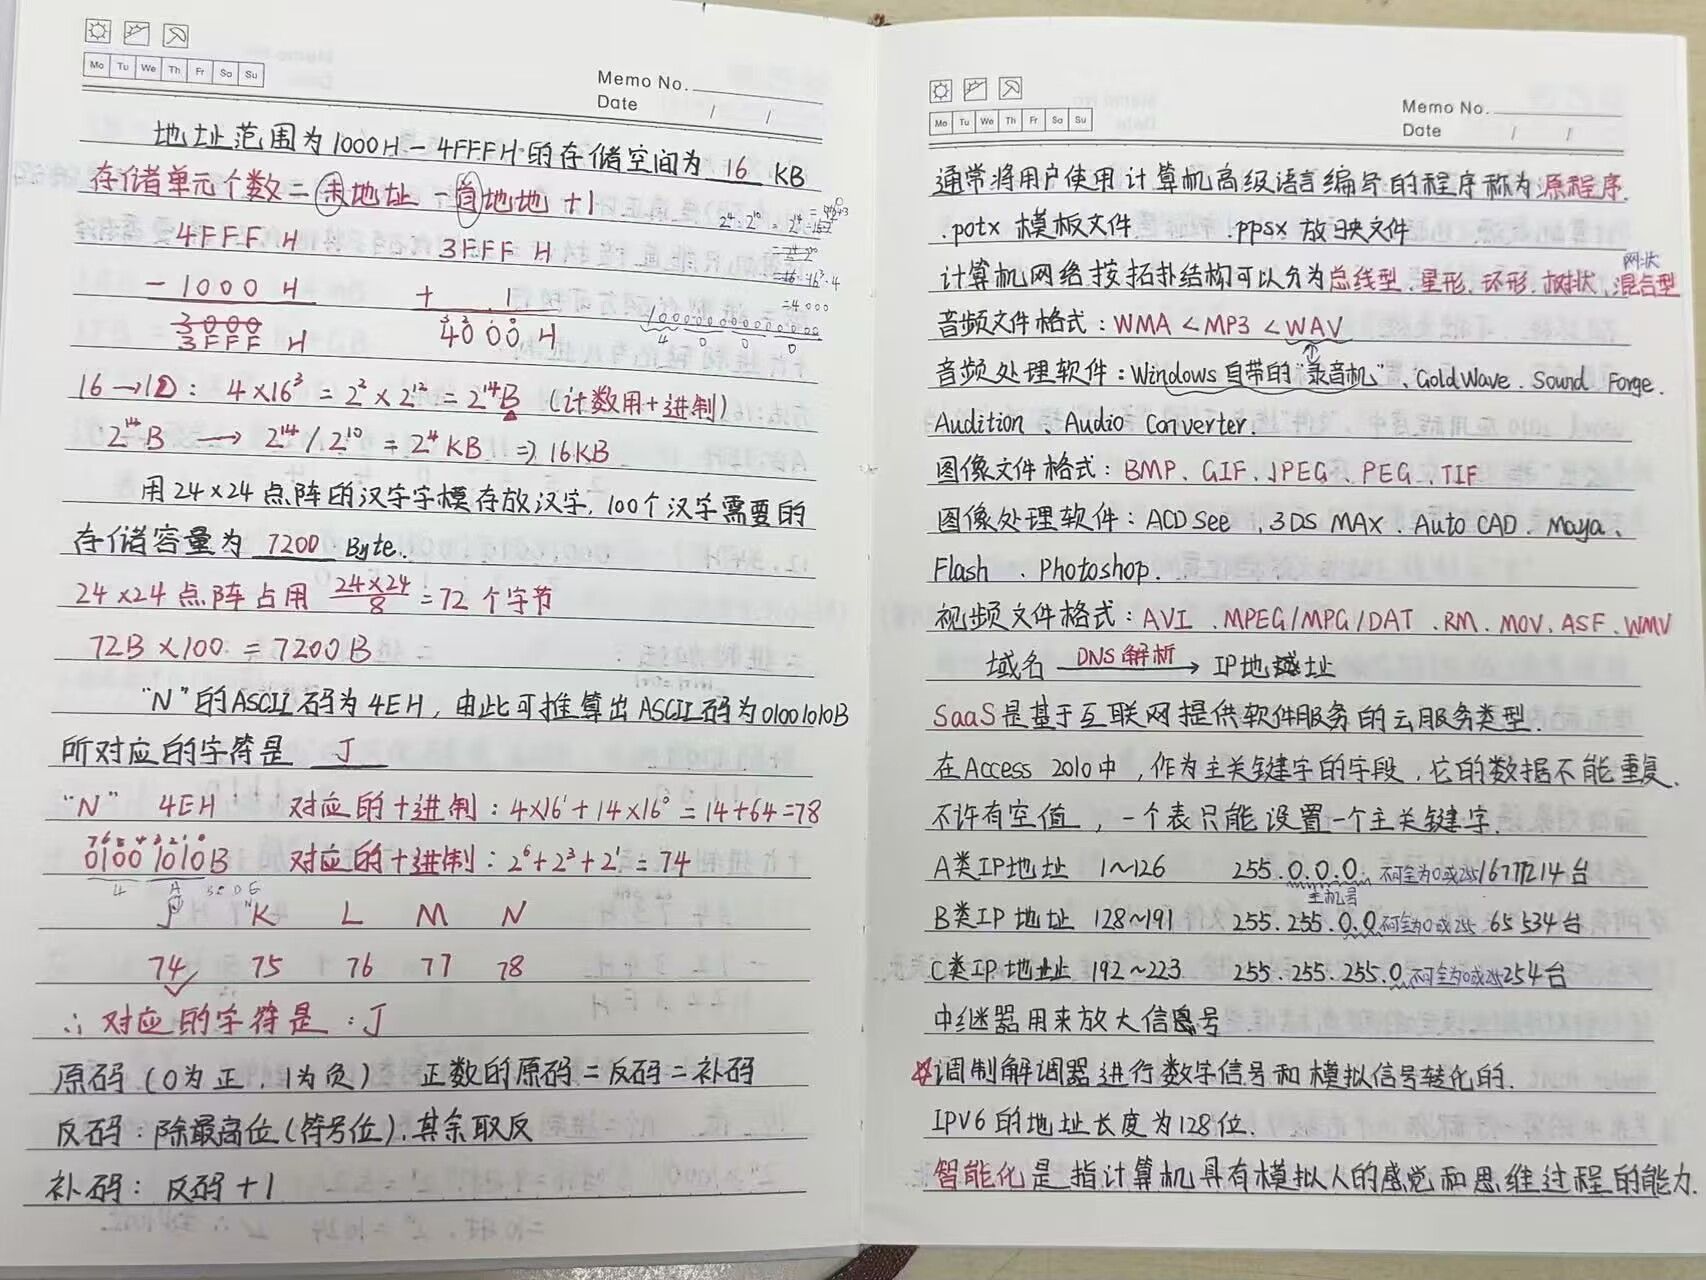 Mo Tu We Th Fr Sa Su
Memo No.
Date / /
地址范围为1000H-4FFFH的存储空间为 16 KB
存储单元个数=末地址-首地地+1
4FFF H 3FFF H
- 1000 H + 1
3000
3FFF H 4000 H
16→10: 4×16³ = 2²×2¹² = 2¹⁴B (计数用十进制)
2¹⁴B → 2¹⁴/2¹⁰ = 2⁴KB ⇒ 16KB
用24×24点阵的汉字字模存放汉字,100个汉字需要的
存储容量为 7200 Byte.
24×24点阵占用 24×24/8 =72个字节
72B×100 = 7200B
"N"的ASCII码为4EH,由此可推算出ASCII码为01001010B
所对应的字符是 J
"N" 4EH 对应的十进制: 4×16¹+14×16⁰=14+64=78
7 6 5 4 3 2 1 0
0100 1010B 对应的十进制: 2⁶+2³+2¹=74
4 A B C D E
J K L M N
74 75 76 77 78
∴对应的字符是: J
原码(0为正,1为负) 正数的原码=反码=补码
反码: 除最高位(符号位),其余取反
补码: 反码+1
Memo No.
Date / /
Mo Tu We Th Fr Sa Su
通常将用户使用计算机高级语言编写的程序称为源程序.
.potx 模板文件 .ppsx 放映文件
网状
计算机网络按拓扑结构可以分为总线型、星形、环形、树状、混合型
音频文件格式: WMA<MP3<WAV
音频处理软件: Windows自带的"录音机"、GoldWave、Sound Forge.
Audition、Audio Converter.
图像文件格式: BMP、GIF、JPEG、PEG、TIF
图像处理软件: ACDSee、3DS MAX、Auto CAD、Maya、
Flash、Photoshop.
视频文件格式: AVI、MPEG/MPG/DAT、RM、MOV、ASF、WMV
域名 DNS解析→ IP地址
SaaS是基于互联网提供软件服务的云服务类型.
在Access 2010中,作为主关键字的字段,它的数据不能重复.
不许有空值,一个表只能设置一个主关键字.
A类IP地址 1~126 255.0.0.0. 不可全为0或255 16777214台
主机号
B类IP地址 128~191 255.255.0.0 不可全为0或255 65534台
C类IP地址 192~223 255.255.255.0 不可全为0或255 254台
中继器用来放大信号
☆调制解调器进行数字信号和模拟信号转化的.
IPV6的地址长度为128位.
智能化是指计算机具有模拟人的感觉和思维过程的能力.